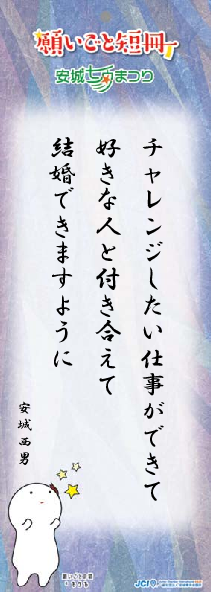 願いごと短冊
安城七夕まつり
チャレンジしたい仕事ができて
好きな人と付き合えて
結婚できますように
安城西男
JCI